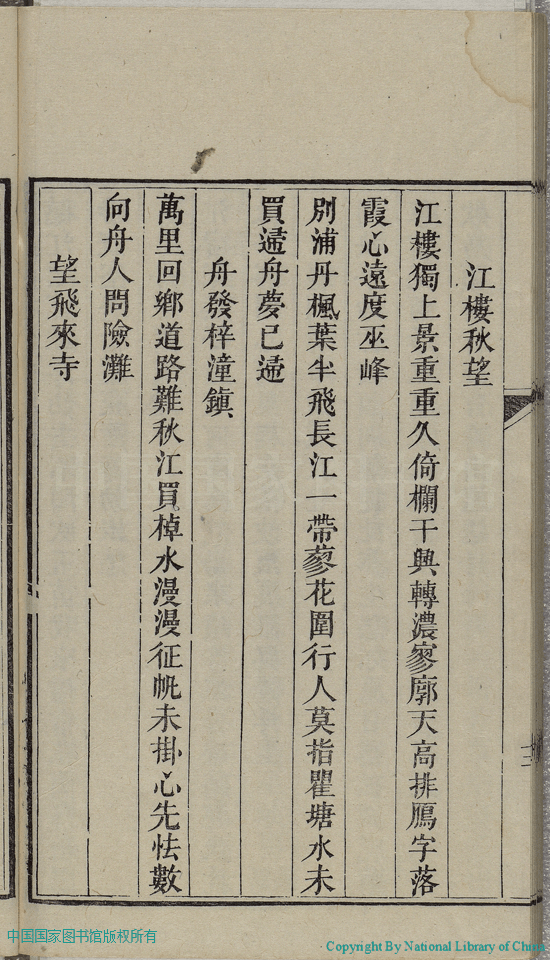 江樓秋望
江樓獨上景重重久倚欄干興轉濃寥廓天高排鴈字落
霞心遠度巫峰
別浦丹楓葉半飛長江一帶蓼花圍行人莫指瞿塘水未
買歸舟夢已歸
舟發梓潼鎮
萬里回鄉道路難秋江買棹水漫漫征帆未掛心先怯數
向舟人問險灘
望飛來寺
中国国家图书馆版权所有
Copyright By National Library of China